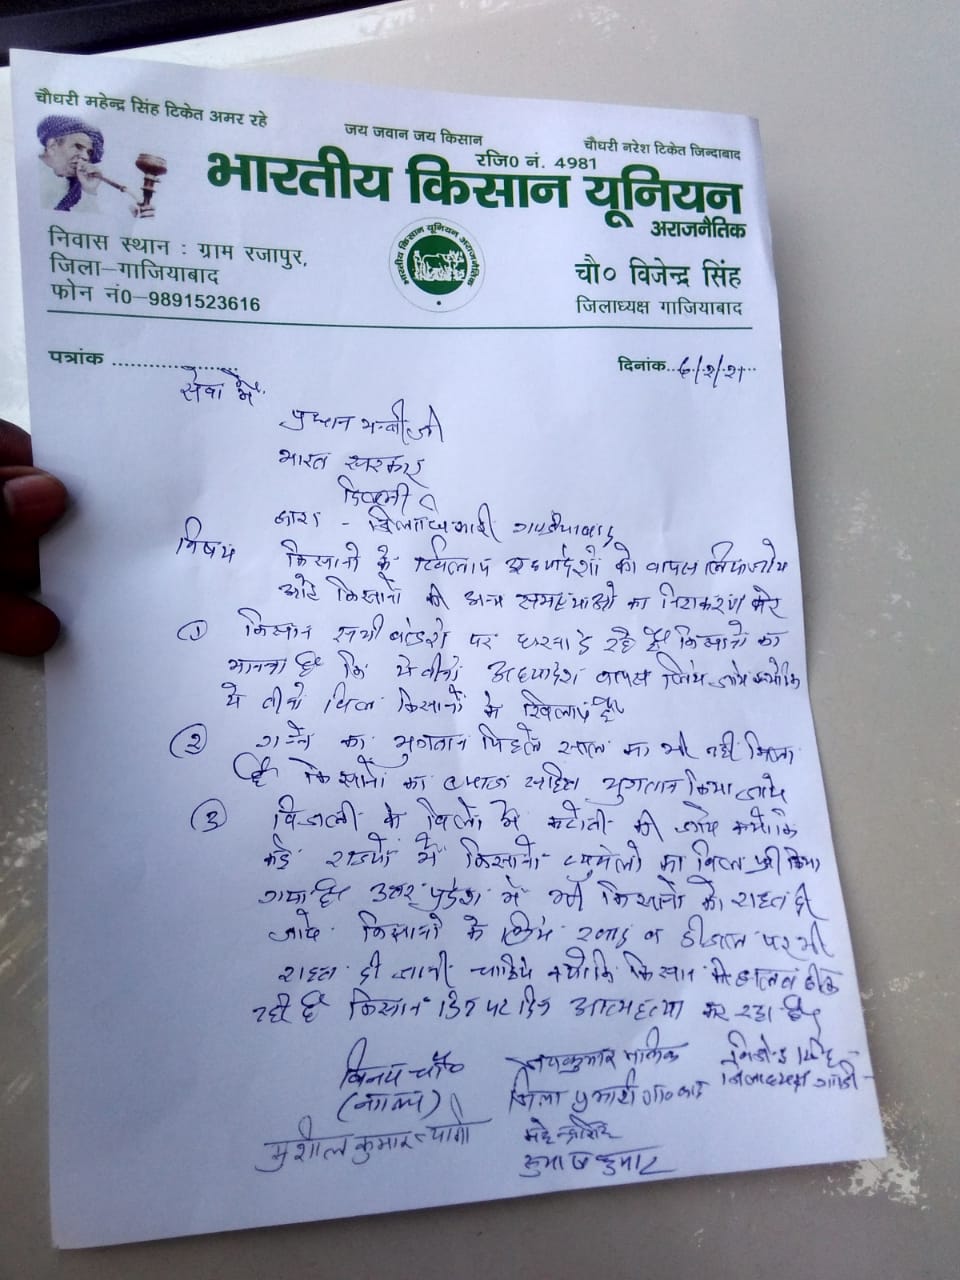 चौधरी महेन्द्र सिंह टिकेत अमर रहे
जय जवान जय किसान
चौधरी नरेश टिकेत जिन्दाबाद
रजि0 नं. 4981
भारतीय किसान यूनियन
अराजनैतिक
निवास स्थान : ग्राम रजापुर,
जिला–गाजियाबाद
फोन नं0–9891523616
भारतीय किसान यूनियन अराजनैतिक
चौ० विजेन्द्र सिंह
जिलाध्यक्ष गाजियाबाद
पत्रांक ........................
दिनांक...6/2/21
सेवा में
प्रधान मन्त्री जी
भारत सरकार
दिल्ली
द्वारा - जिलाधिकारी गाजियाबाद
विषय किसानों के खिलाफ अध्यादेशों को वापस लिया जाये
और किसानों की अन्य समस्याओं का निराकरण करे
① किसान सभी बोर्डरों पर धरना दे रहे है किसानों का
मानना है कि ये तीनों अध्यादेश वापस लिये जाये क्योंकि
ये तीनों बिल किसानों के खिलाफ है
② गन्ने का भुगतान पिछले साल का भी नहीं मिला
है किसानों का ब्याज सहित भुगतान किया जाये
③ बिजली के बिलों में कटौती की जाये क्योंकि
कई राज्यों में किसानों का बिल फ्री किया
गया है उत्तर प्रदेश में भी किसानों को राहत दी
जाये किसानों के लिये खाद व डीजल पर भी
राहत दी जानी चाहिये क्योंकि किसान की हालत ठीक
नही है किसान दिन पर दिन आत्महत्या कर रहा है
विनय चौ०
जयकुमार मलिक
बिजेन्द्र सिंह
जिला प्रभारी गा०बाद
जिलाध्यक्ष
सुशील कुमार त्यागी
महेन्द्र सिंह
सुभाष कुमार